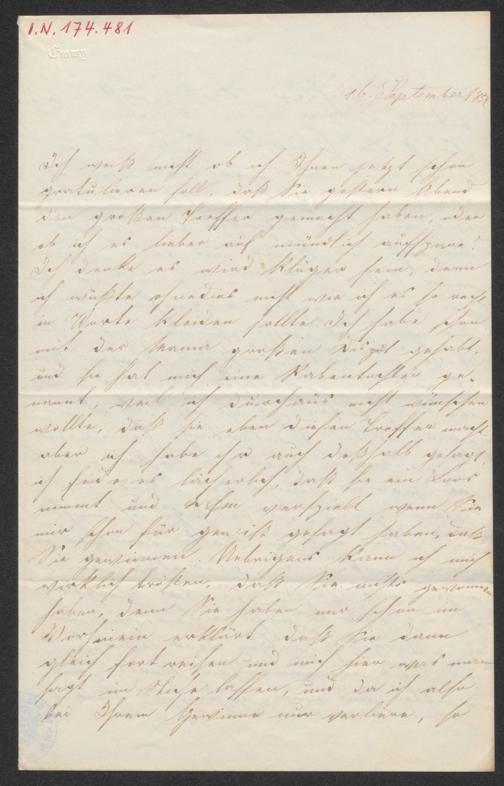 I.N. 174.481
Emmy
16. September 185
Ich weiß nicht, ob ich Ihnen jetzt schon
gratulieren soll, daß Sie gestern Abend
den großen Treffer gemacht haben, oder
ob ich es lieber auf mündlich aufspare!
Ich denke es wird klüger sein, denn
ich wüßte ohnedies nicht wie ich es so recht
in Worte kleiden sollte. Ich habe schon
mit der Mama großen Disput gehabt,
und sie hat mich eine Rabentochter ge-
nannt, weil ich durchaus nicht wünschen
wollte, daß sie eben diesen Treffer macht
aber ich habe ihr auch deßhalb gesagt,
ich finde es lächerlich, daß sie ein Loos
nimmt und verspielt wenn Sie
mir schon für gewiß gesagt haben, daß
Sie gewinnen. Uebrigens kann ich mich
wirklich trösten, daß Sie nichts gewonnen
haben, denn Sie haben mir schon im
Vorhinein erklärt daß Sie dann
gleich fort reisen und mich hier was man
sagt im Stiche lassen, und da ich also
bei Ihrem Gewinne nur verliere, so